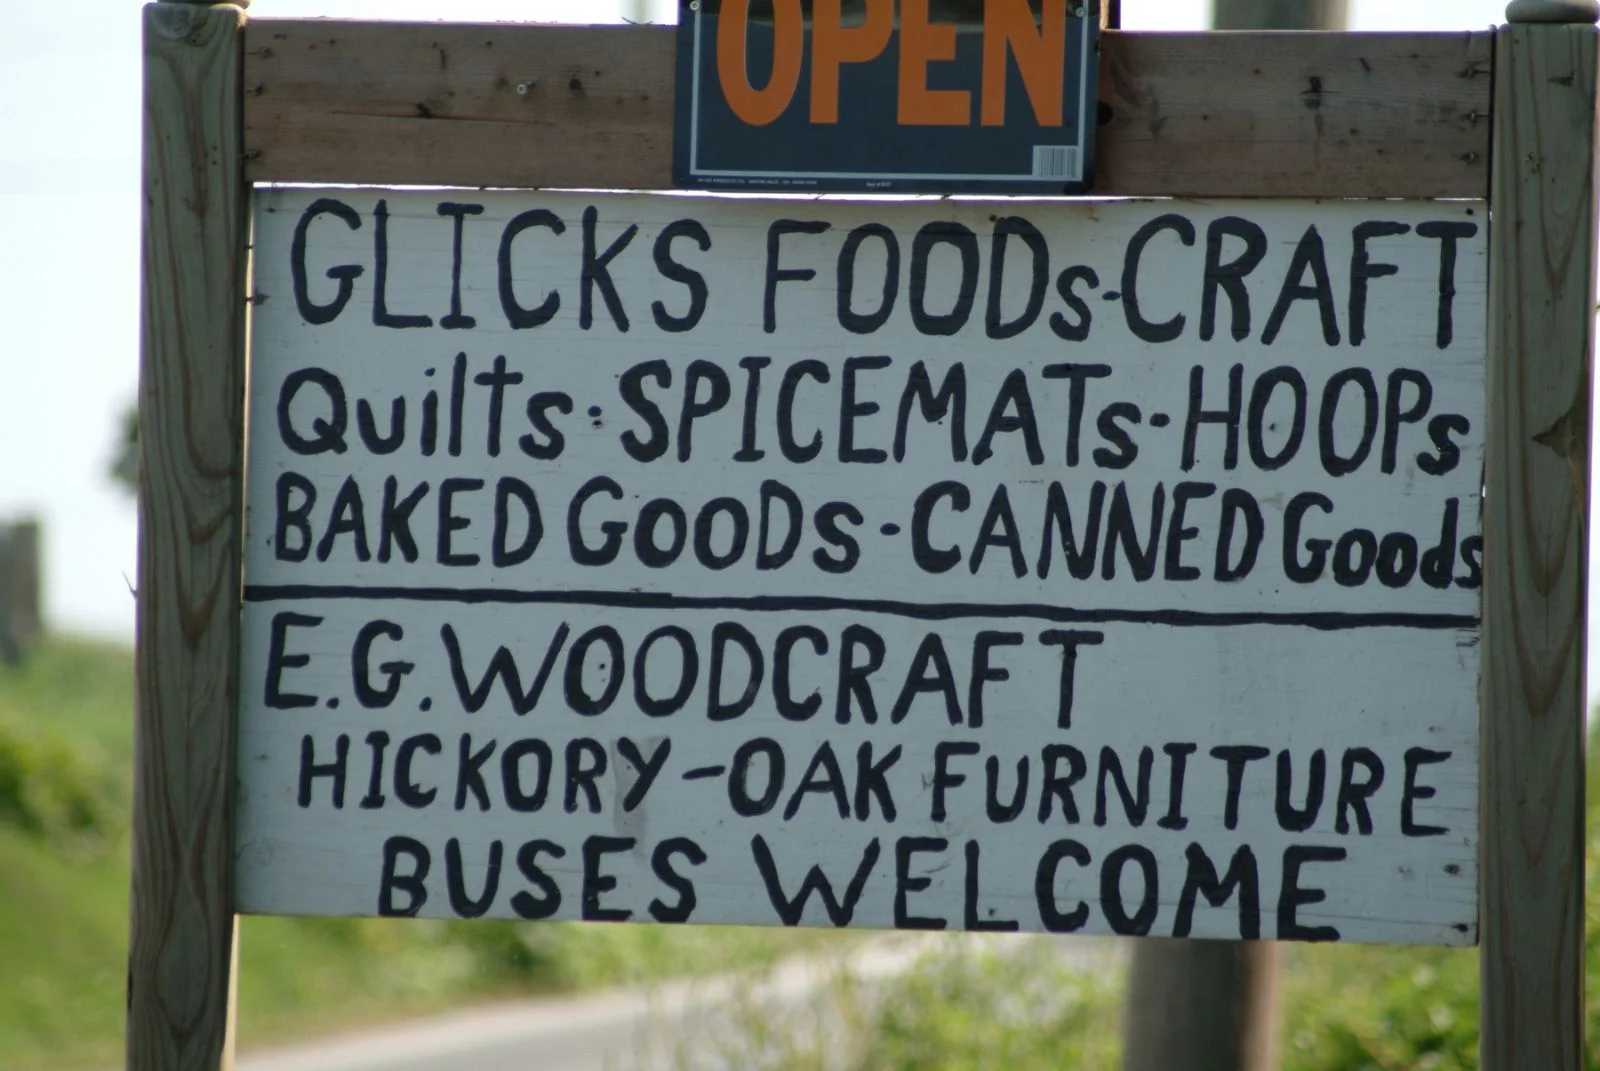 OPEN
GLICKS FOODs-CRAFT
Quilts·SPICEMATs-HOOPs
BAKED GOODs-CANNED Goods
E.G. WOODCRAFT
HICKORY-OAK FURNITURE
BUSES WELCOME